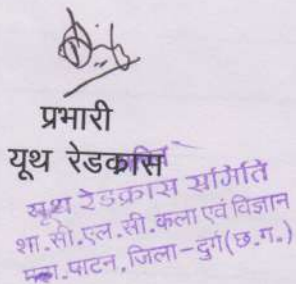 प्रभारी
यूथ रेडक्रास
यूथ रेडक्रास समिति
शा.सी.एल.सी.कला एवं विज्ञान
महा.पाटन,जिला-दुर्ग(छ.ग.)